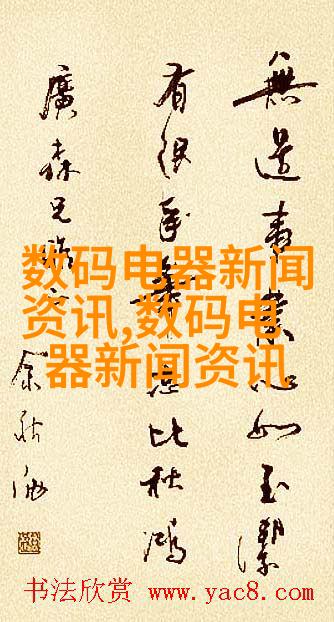 無 心如玉潔
有 意比秋鴻
廣森兄
余秋雨
数码电器新闻
资讯,数码电
器新闻资讯
书法欣赏 www.yac8.com